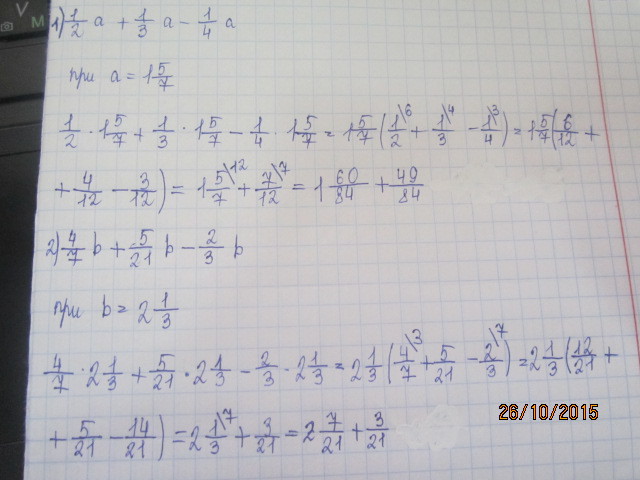 1) 1/2 a + 1/3 a - 1/4 a
при a = 1 5/7
1/2 · 1 5/7 + 1/3 · 1 5/7 - 1/4 · 1 5/7 = 1 5/7 (1\6/2 + 1\4/3 - 1\3/4) = 1 5/7 (6/12 +
+ 4/12 - 3/12) = 1 5\12/7 + 7\7/12 = 1 60/84 + 49/84
2) 4/7 b + 5/21 b - 2/3 b
при b = 2 1/3
4/7 · 2 1/3 + 5/21 · 2 1/3 - 2/3 · 2 1/3 = 2 1/3 (4\3/7 + 5/21 - 2\7/3) = 2 1/3 (12/21 +
+ 5/21 - 14/21) = 2 1\7/3 + 3/21 = 2 7/21 + 3/21
26/10/2015
V
M